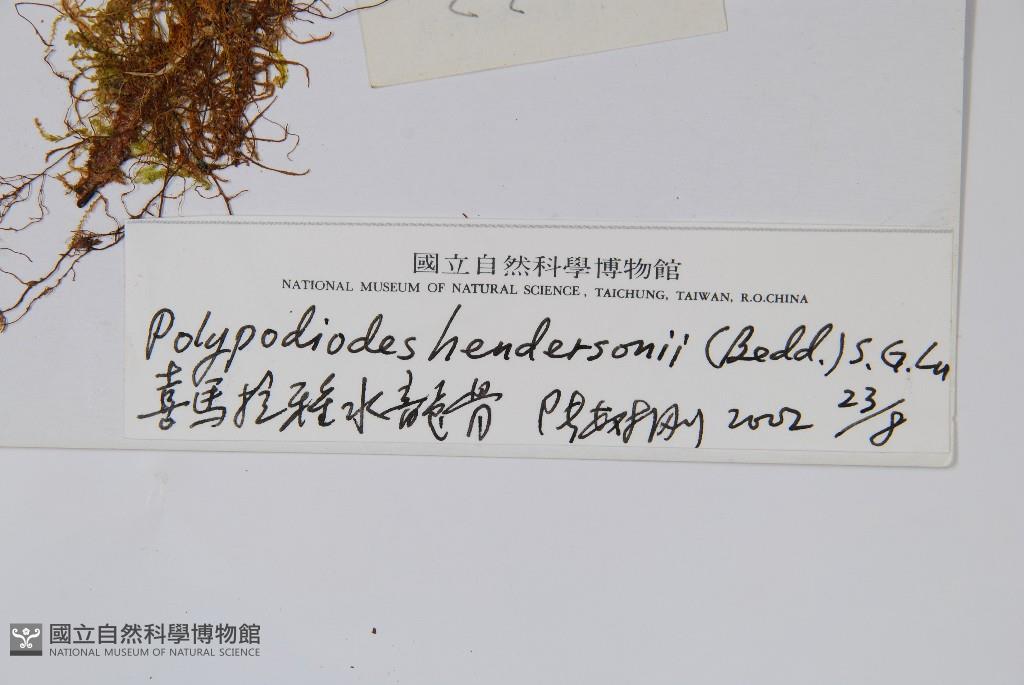 國立自然科學博物館
NATIONAL MUSEUM OF NATURAL SCIENCE, TAICHUNG, TAIWAN, R.O.CHINA
Polypodiodes hendersonii (Bedd.) S.G.Lu
喜馬拉雅水龍骨 2002 23/8
國立自然科學博物館
NATIONAL MUSEUM OF NATURAL SCIENCE